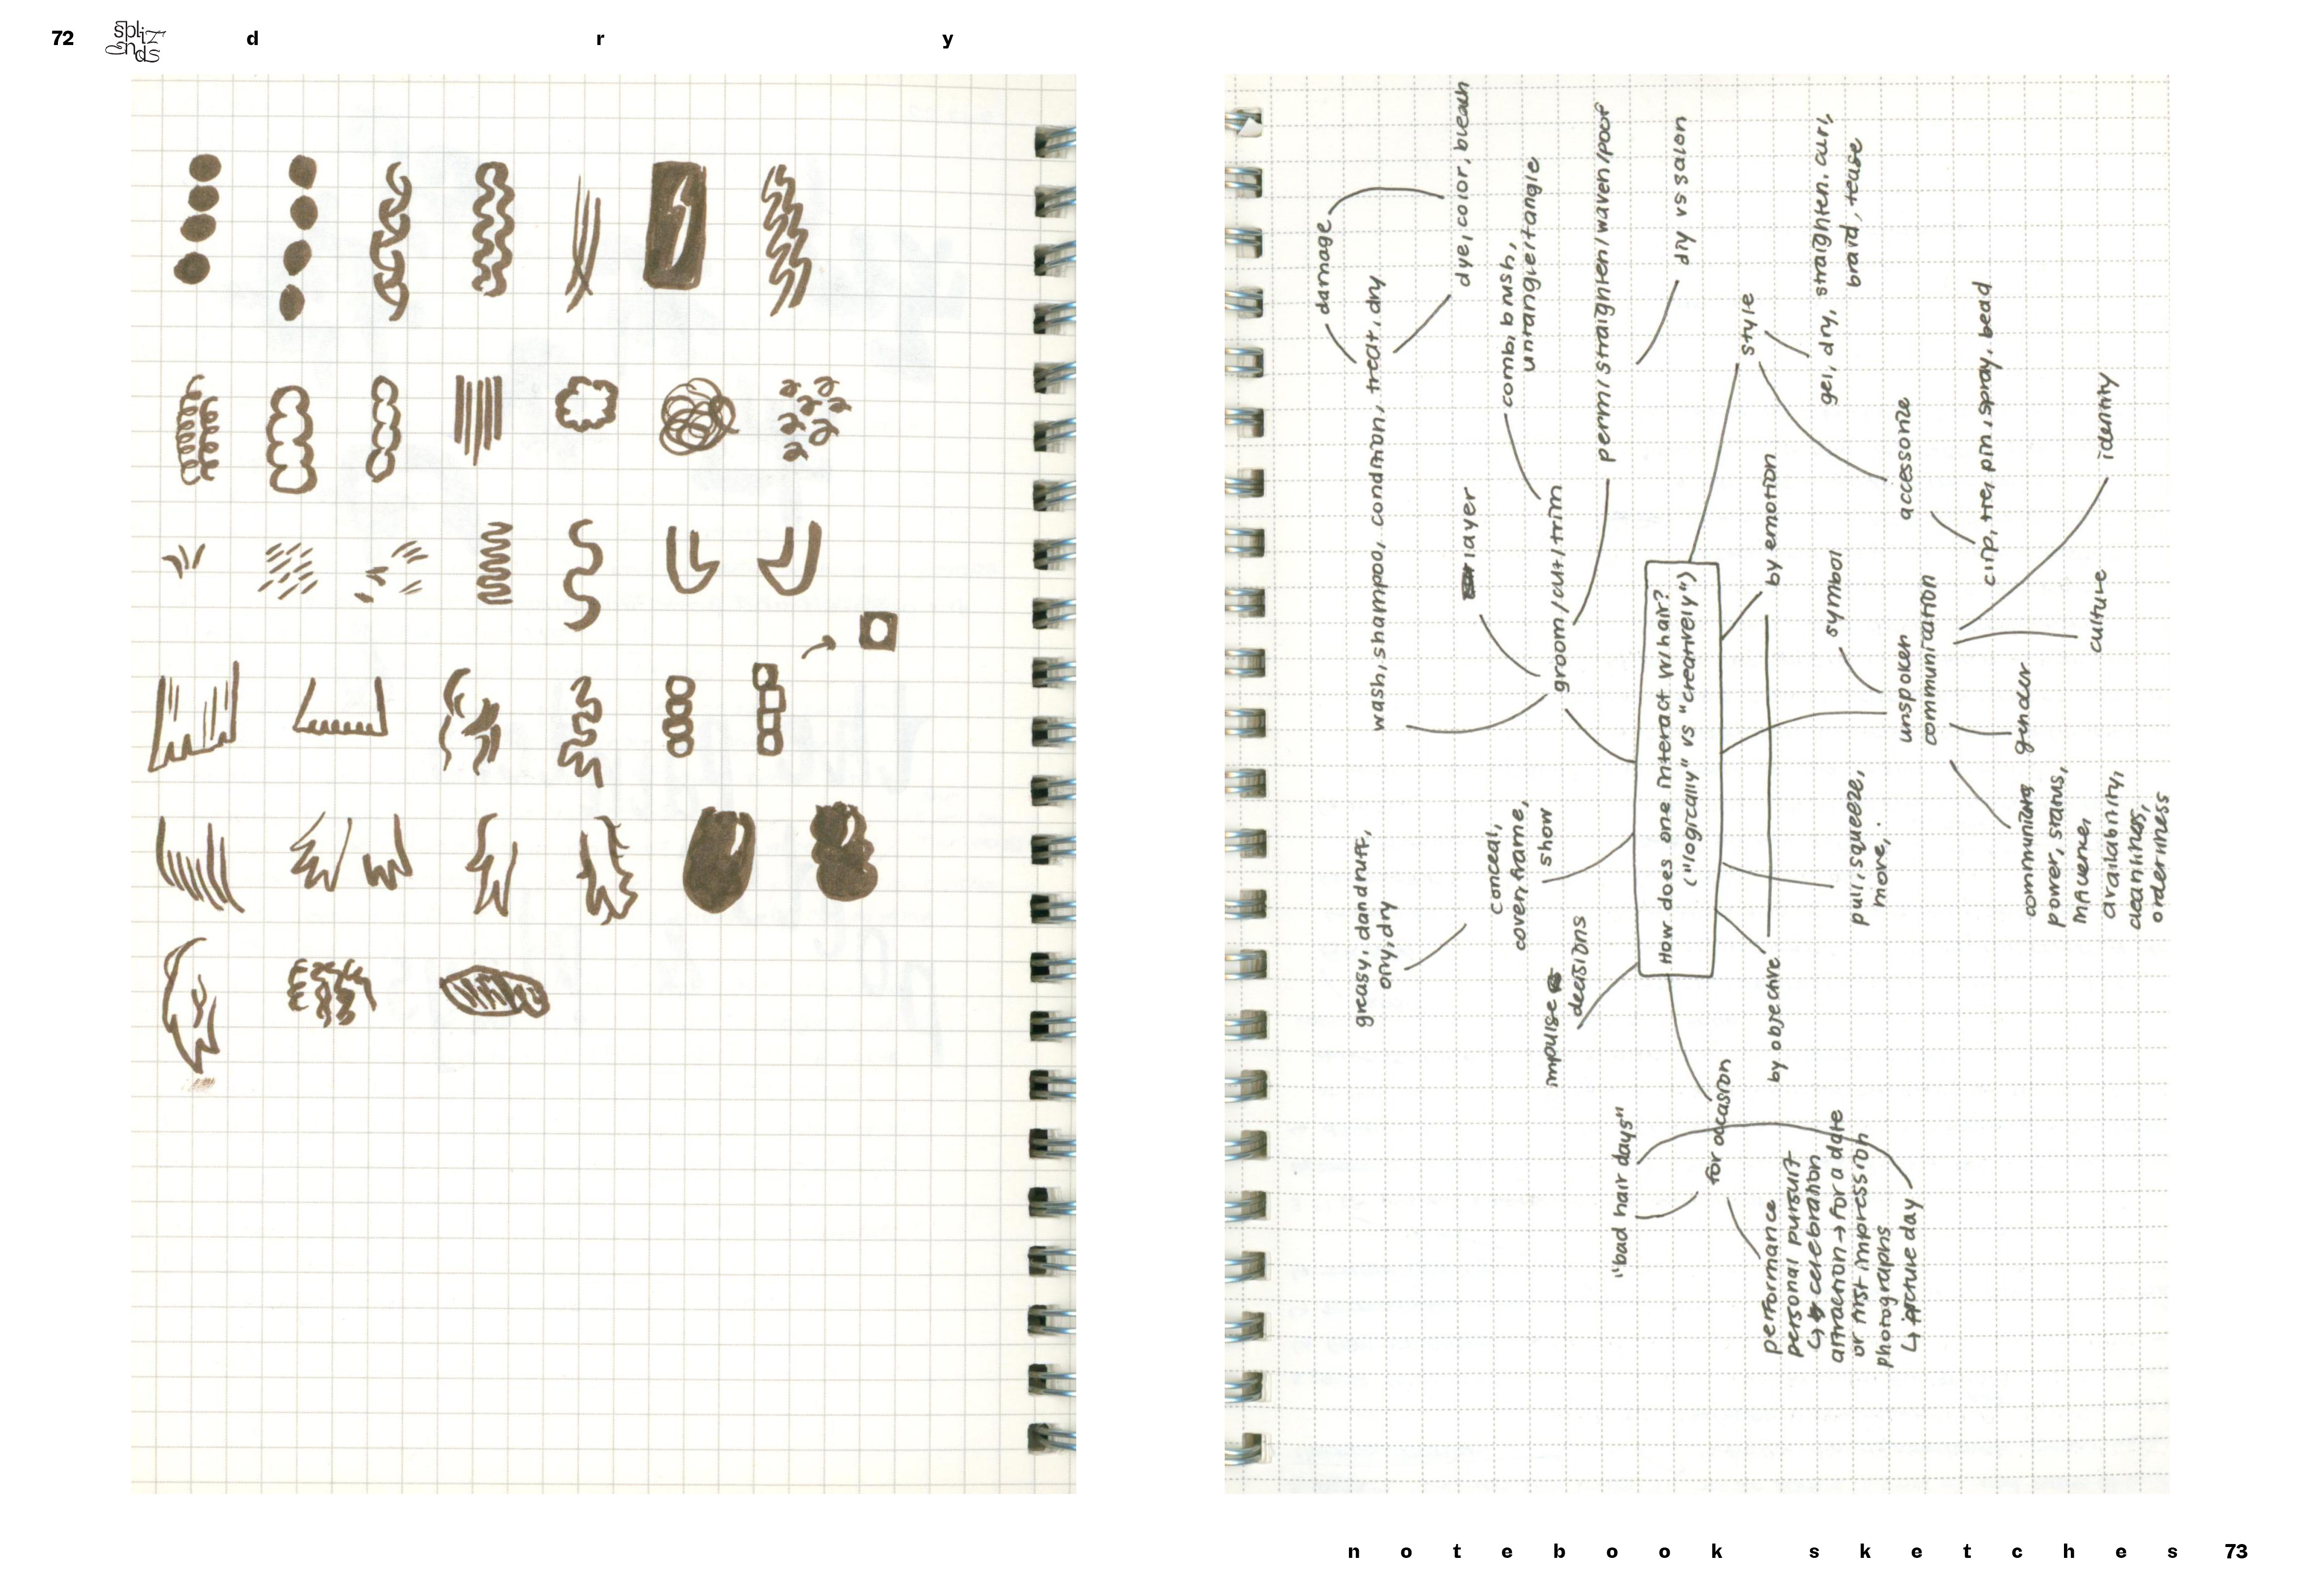 72
split ends
d r y
damage
wash, shampoo, condition, treat, dry
dye, color, bleach
layer
comb, brush,
untangle/tangle
groom/cut/trim
perm/straighten/waven/poof
diy vs salon
style
gel, dry, straighten, curl,
braid, tease
accessorize
clip, tie, pin, spray, bead
How does one interact w/ hair?
("logically" vs "creatively")
by emotion
by objective
symbol
unspoken
communication
identity
culture
gender
communing
power, status,
availability,
cleanliness,
orderliness
pull, squeeze,
move,
conceal,
cover, frame,
show
greasy, dandruff,
oily, dry
impulse
decisions
for occasion
"bad hair days"
performance
personal pursuit
↳ celebration
attraction → for a date
or first impression
photographs
↳ picture day
n o t e b o o k s k e t c h e s
73